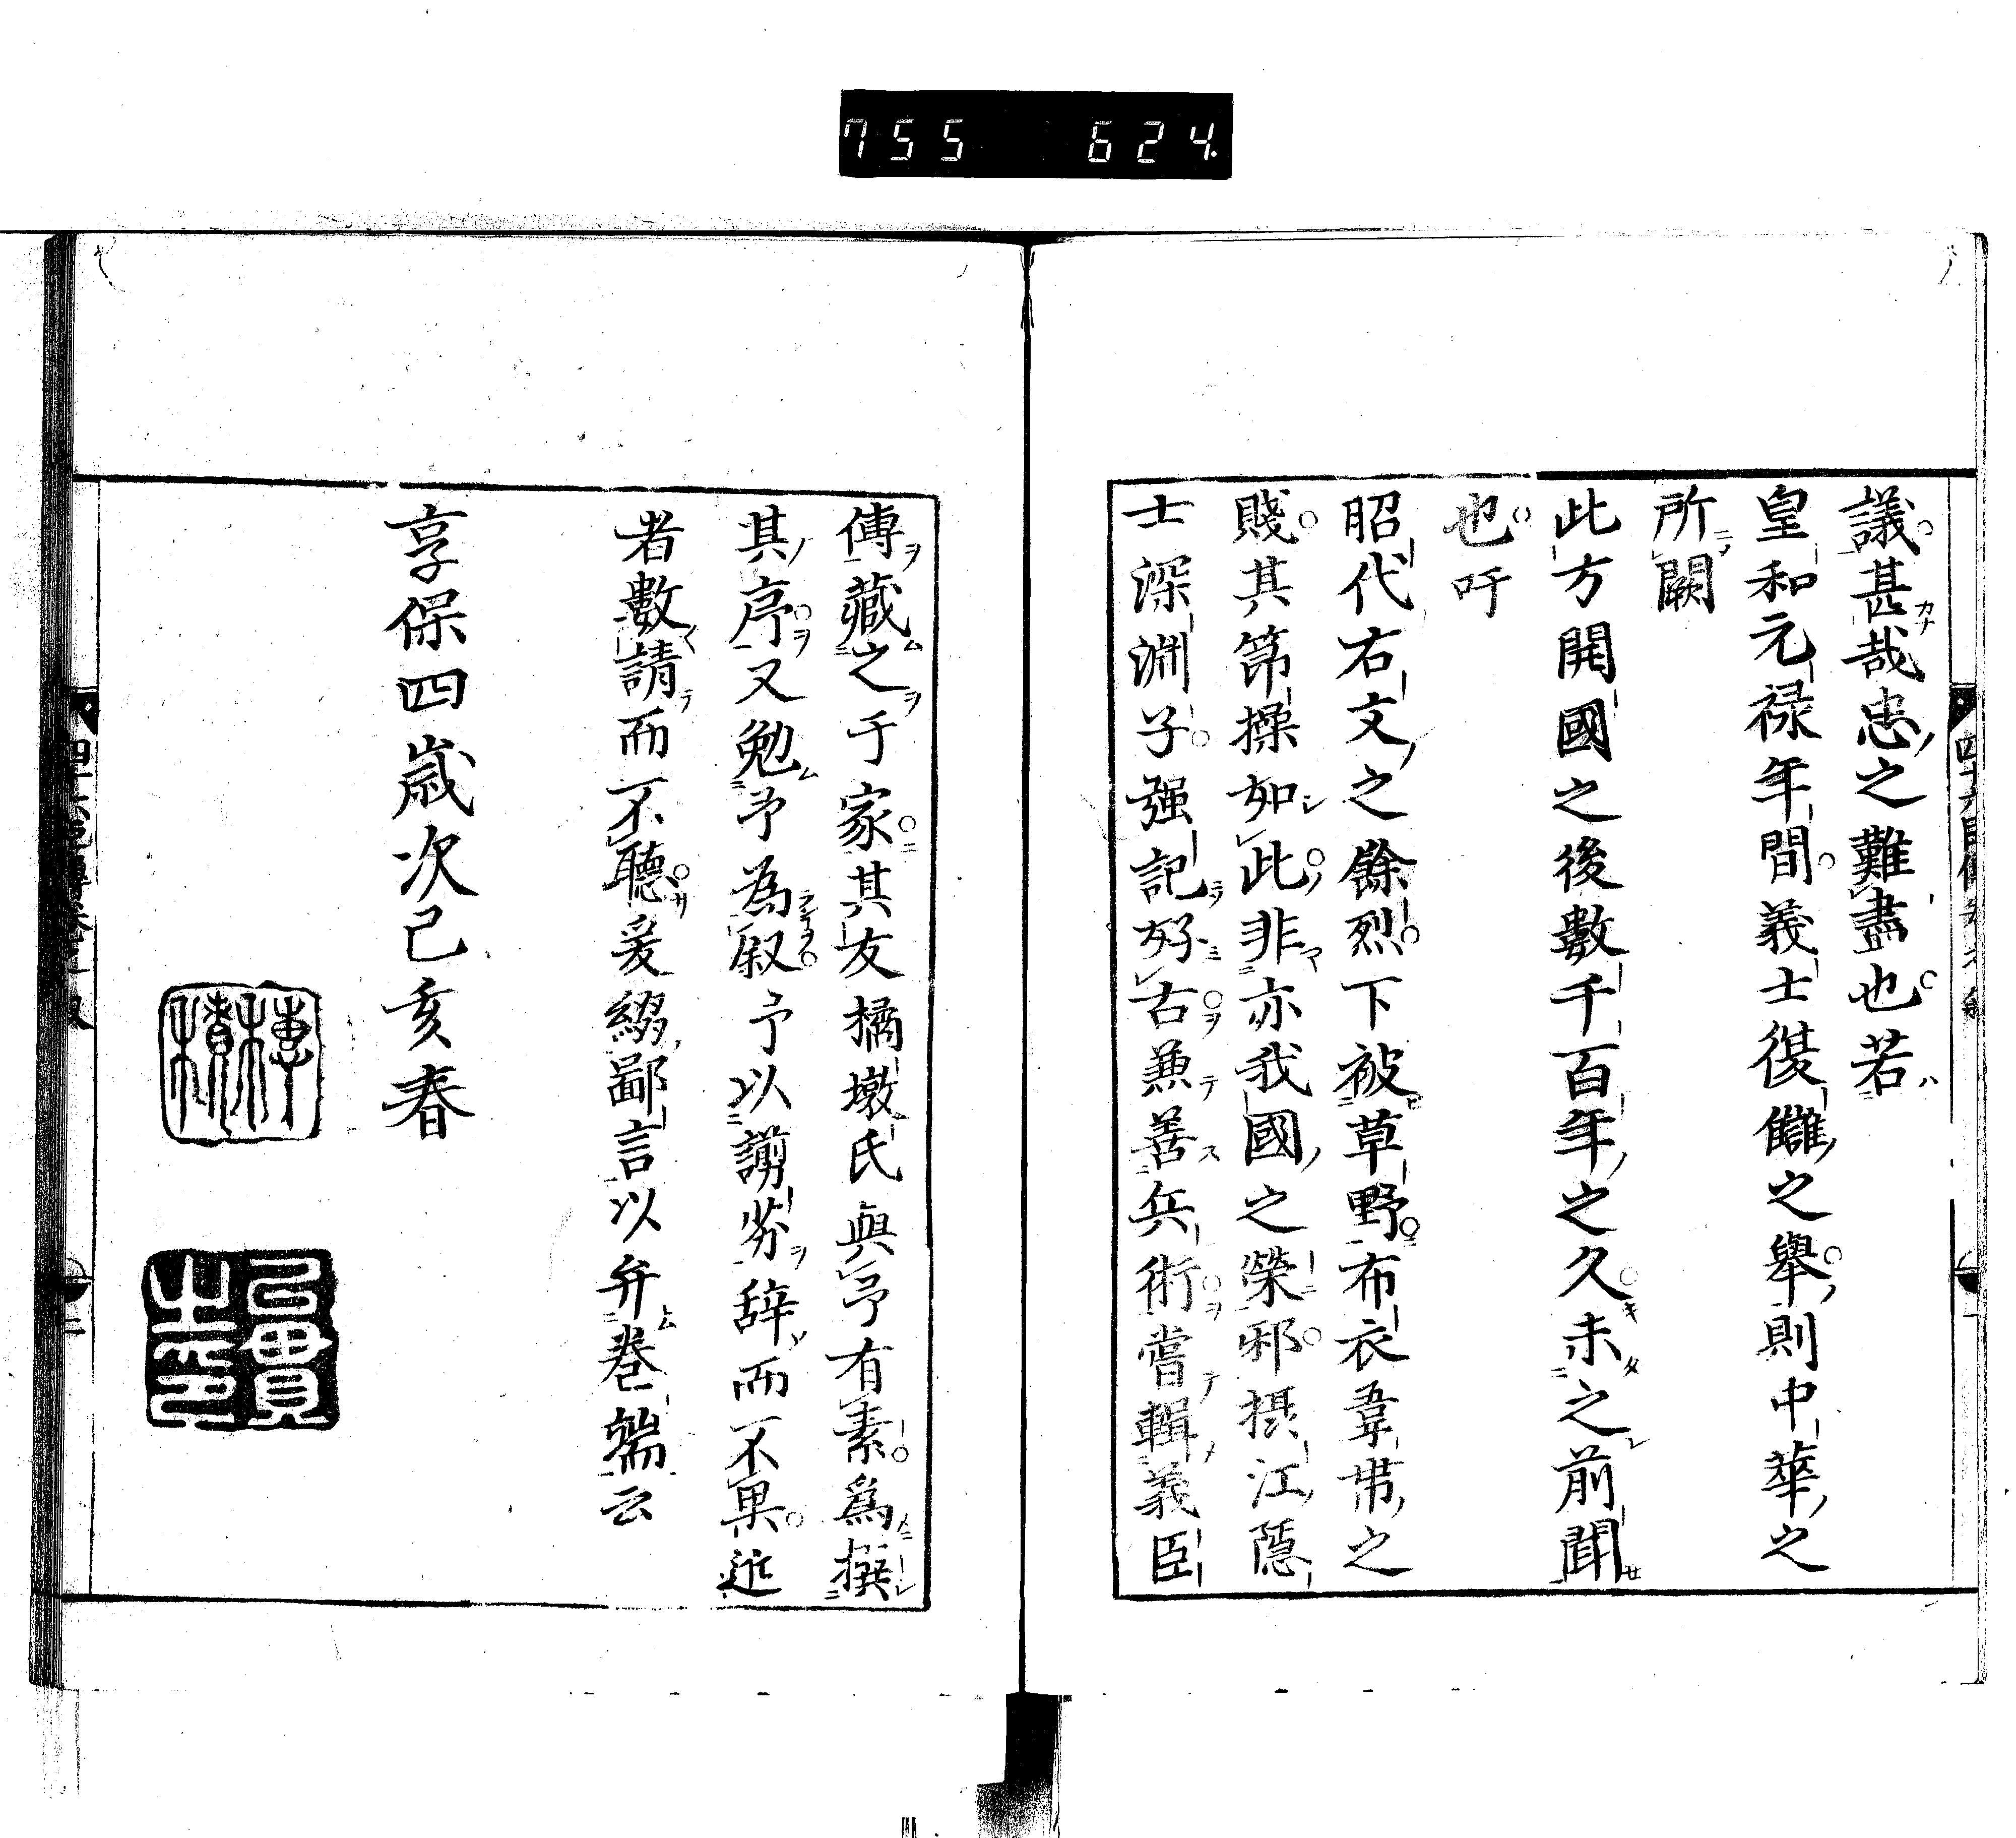 755 624
議甚哉忠之難盡也若
皇和元禄年間義士復讎之舉則中華之
所闕
此方開國之後數千百年之久未之前聞
也吁
昭代右文之餘烈下被草野布衣韋帶之
賤其節操如此非亦我國之榮邪摂江隱
士深淵子強記好古兼善兵術嘗輯義臣
傳藏之于家其友橘墩氏與予有素為撰
其序又勉予為叙予以謭劣辞而不果近
者數請而不聽爰綴鄙言以弁巻端云
享保四歳次己亥春